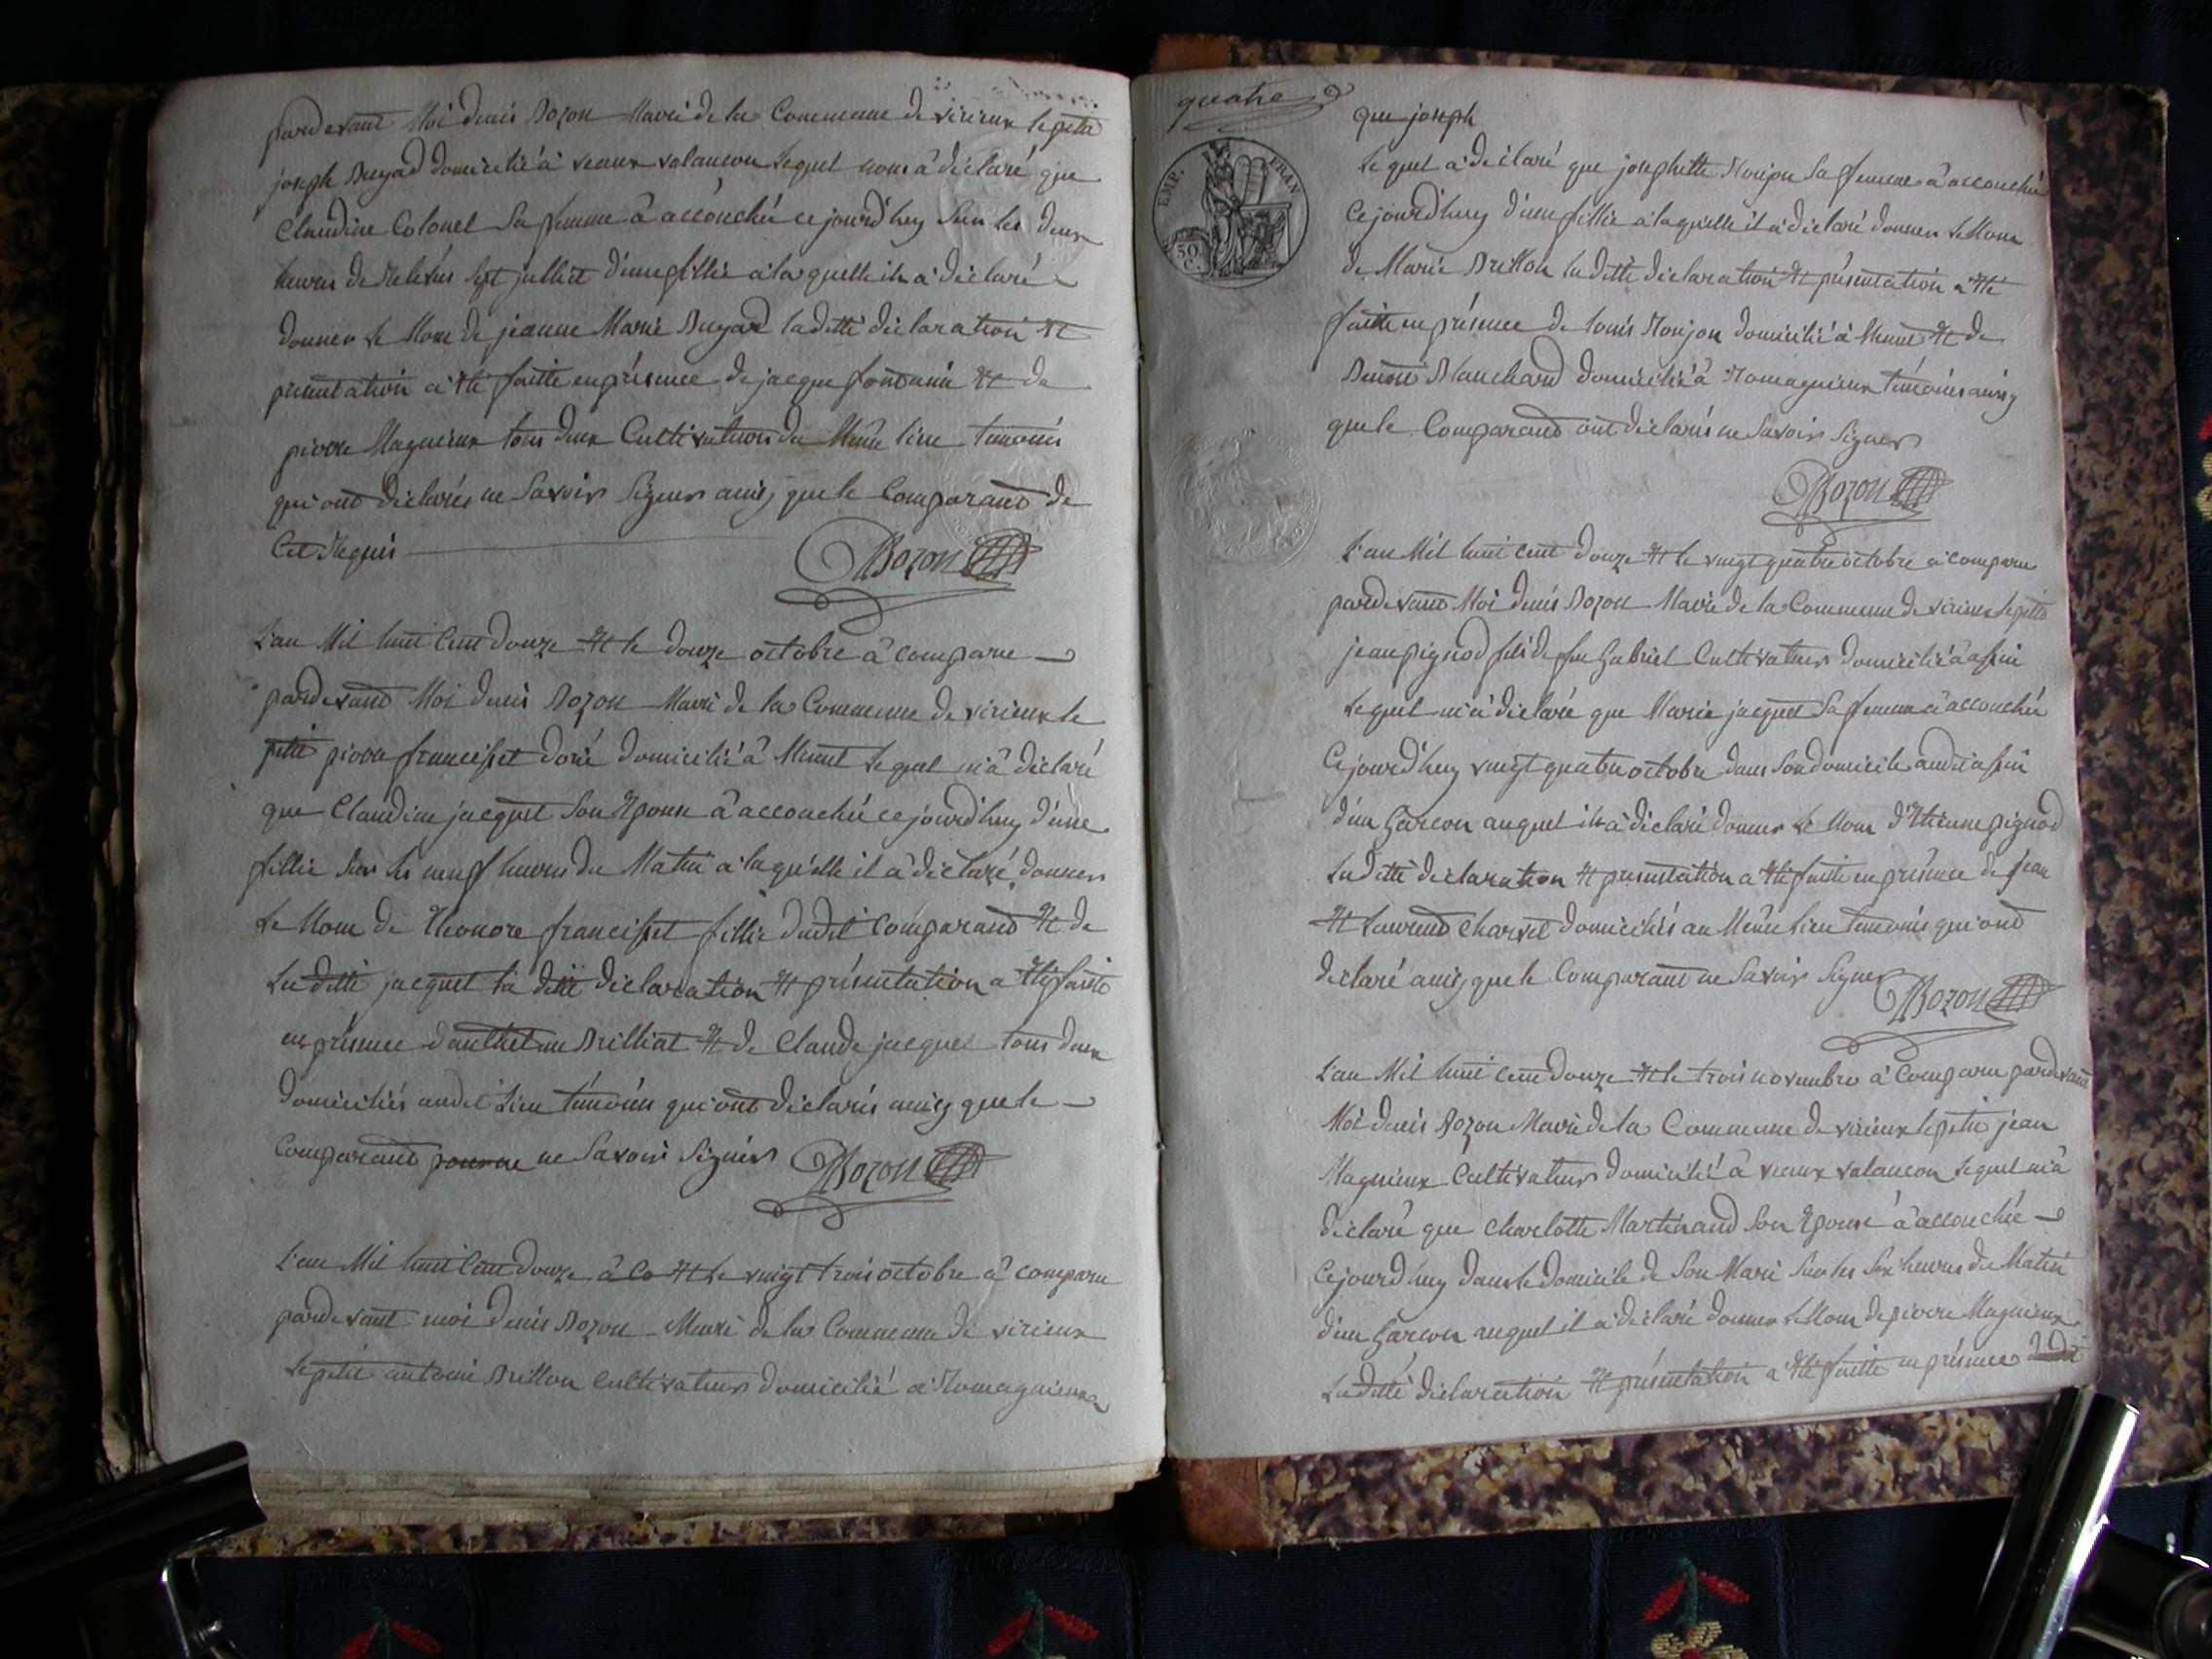 pardevant Moi denis Bozon Maire de la Commune de virieux lepetit
joseph Bugad domicilié à veaux valancon lequel nous à déclaré que
Claudine Colonel Sa femme à accouché ce jourd'huy Sur les deux
heures de sept juillet d'une fillie à laquelle ils à déclaré
donner le Nom de jeanne Marie Bugad ladette déclaration et
presentation à été faitte en présence de jacque et de
pierre Magnieux tous deux Cultivateurs du Même lieu temoins
qui ont déclarés ne Savoir Signer ainsy que le Comparand de
Ce Requis
Bozon
L'an Mil huit Cent douze et le douze octobre à comparu
pardevand Moi denis Bozon Maire de la Commune de virieux le
petit pierre francisset doré domicilié à Munet lequel m'à déclaré
que Claudine jacquet Son Epouse à accouché ce jourd'huy d'une
fillie Sur les neuf heures du Matin à laquelle il à déclaré donner
le Nom de Eleonore francisset fillie dudit Comparand et de
Laditte jacquet la ditte déclaration et présentation a été faitte
en présence d'anthelme Brilliat et de Claude jacquet tous deux
domiciliés audit Lieu témoins qui ont déclarés ainsy que le
Comparand ne Savoir Signer Bozon
L'an Mil huit Cent douze à Co et le vingt trois octobre à comparu
pardevant moi denis Bozon Maire de la Commune de virieux
lepetit antoine Brillon Cultivateur domicilié à Romagnieux
quatre
que joseph
EMP. FRAN
50 C.
lequel à déclaré que josephette Monjon Sa femme à accouché
Cejourd'huy d'une fillie à laquelle il à déclaré donner le Nom
de Marie Brillon laditte déclaration et présentation a été
faitte en présence de louis Monjon domicilié à Munet et de
Benoit Blanchard domicilié à Romagnieux témoins ainsy
que le Comparand ont déclarés ne Savoir Signer
Bozon
L'an Mil huit cent douze et le vingt quatre octobre à comparu
pardevant Moi denis Bozon Maire de la Commune de virieux lepetit
jean pignod fils de feu Gabriel Cultivateur domicilié à assin
lequel m'à déclaré que Marie jacquet Sa femme à accouché
Cejourd'huy vingt quatre octobre dans Son domicile audit assin
d'un Garcon auquel ils à déclaré donner le Nom d'Etienne pignod
Laditte déclaration et presentation a été faitte en présence de jean
et Laurend Charvet domiciliés au Même Lieu temoins qui ond
déclaré ainsy que le Comparant ne Savoir Signer Bozon
L'an Mil huit cent douze et le trois novembre à Comparu pardevant
Moi denis Bozon Maire de la Commune de virieux lepetit jean
Magnieux Cultivateur domicilié à veaux valancon lequel m'à
déclaré que Charlotte Martinand Son Epouse à accouchée
Cejourd'huy dans le domicile de Son Mari Sur les Six heures du Matin
d'un Garcon auquel il à déclaré donner le Nom de pierre Magnieux
Laditté déclaration et présentation a été faitte en présence dudit